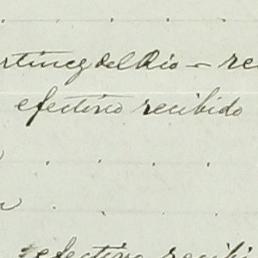 rtinez del Rio — re
efectivo recibido
efectivo recibi